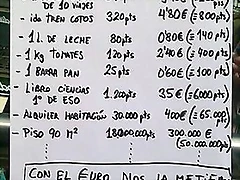 DE 10 VIAJES
- IDA TREN COTOS 320pts 4'80€ (= 800pts)
- 1 L. DE LECHE 80pts 0'80€ (= 140pts)
- 1 Kg TOMATES 120pts 2'40€ (= 400pts)
- 1 BARRA PAN 25pts 0'60€ (= 100pts)
- LIBRO CIENCIAS 1.200pts 35€ (= 6.000pts)
1º DE ESO
- ALQUILER HABITACIÓN 30.000pts 400€ (= 65.000pts)
- PISO 90 M² 300.000€
(50.000.000pts)
CON EL EURO NOS LA METIER